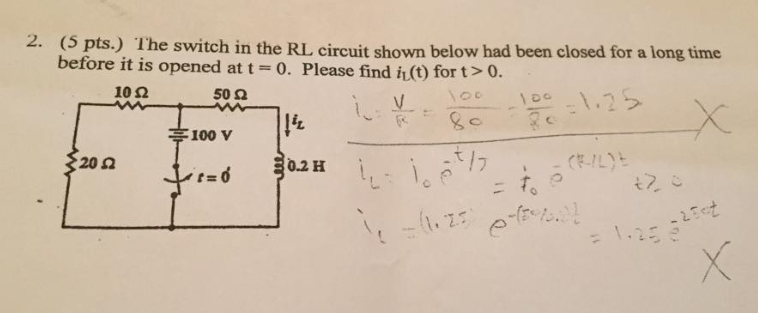 2. (5 pts.) The switch in the RL circuit shown below had been closed for a long time
before it is opened at t = 0. Please find iL(t) for t > 0.
10 Ω
50 Ω
100 V
iL
20 Ω
t = 0
0.2 H
iL = V/R = 100/80 = 100/80 = 1.25
X
iL = i₀ e^-t/τ = i₀ e^-(R/L)t t≥0
iL = (1.25) e^-(50/0.2)t = 1.25 e^-250t
X